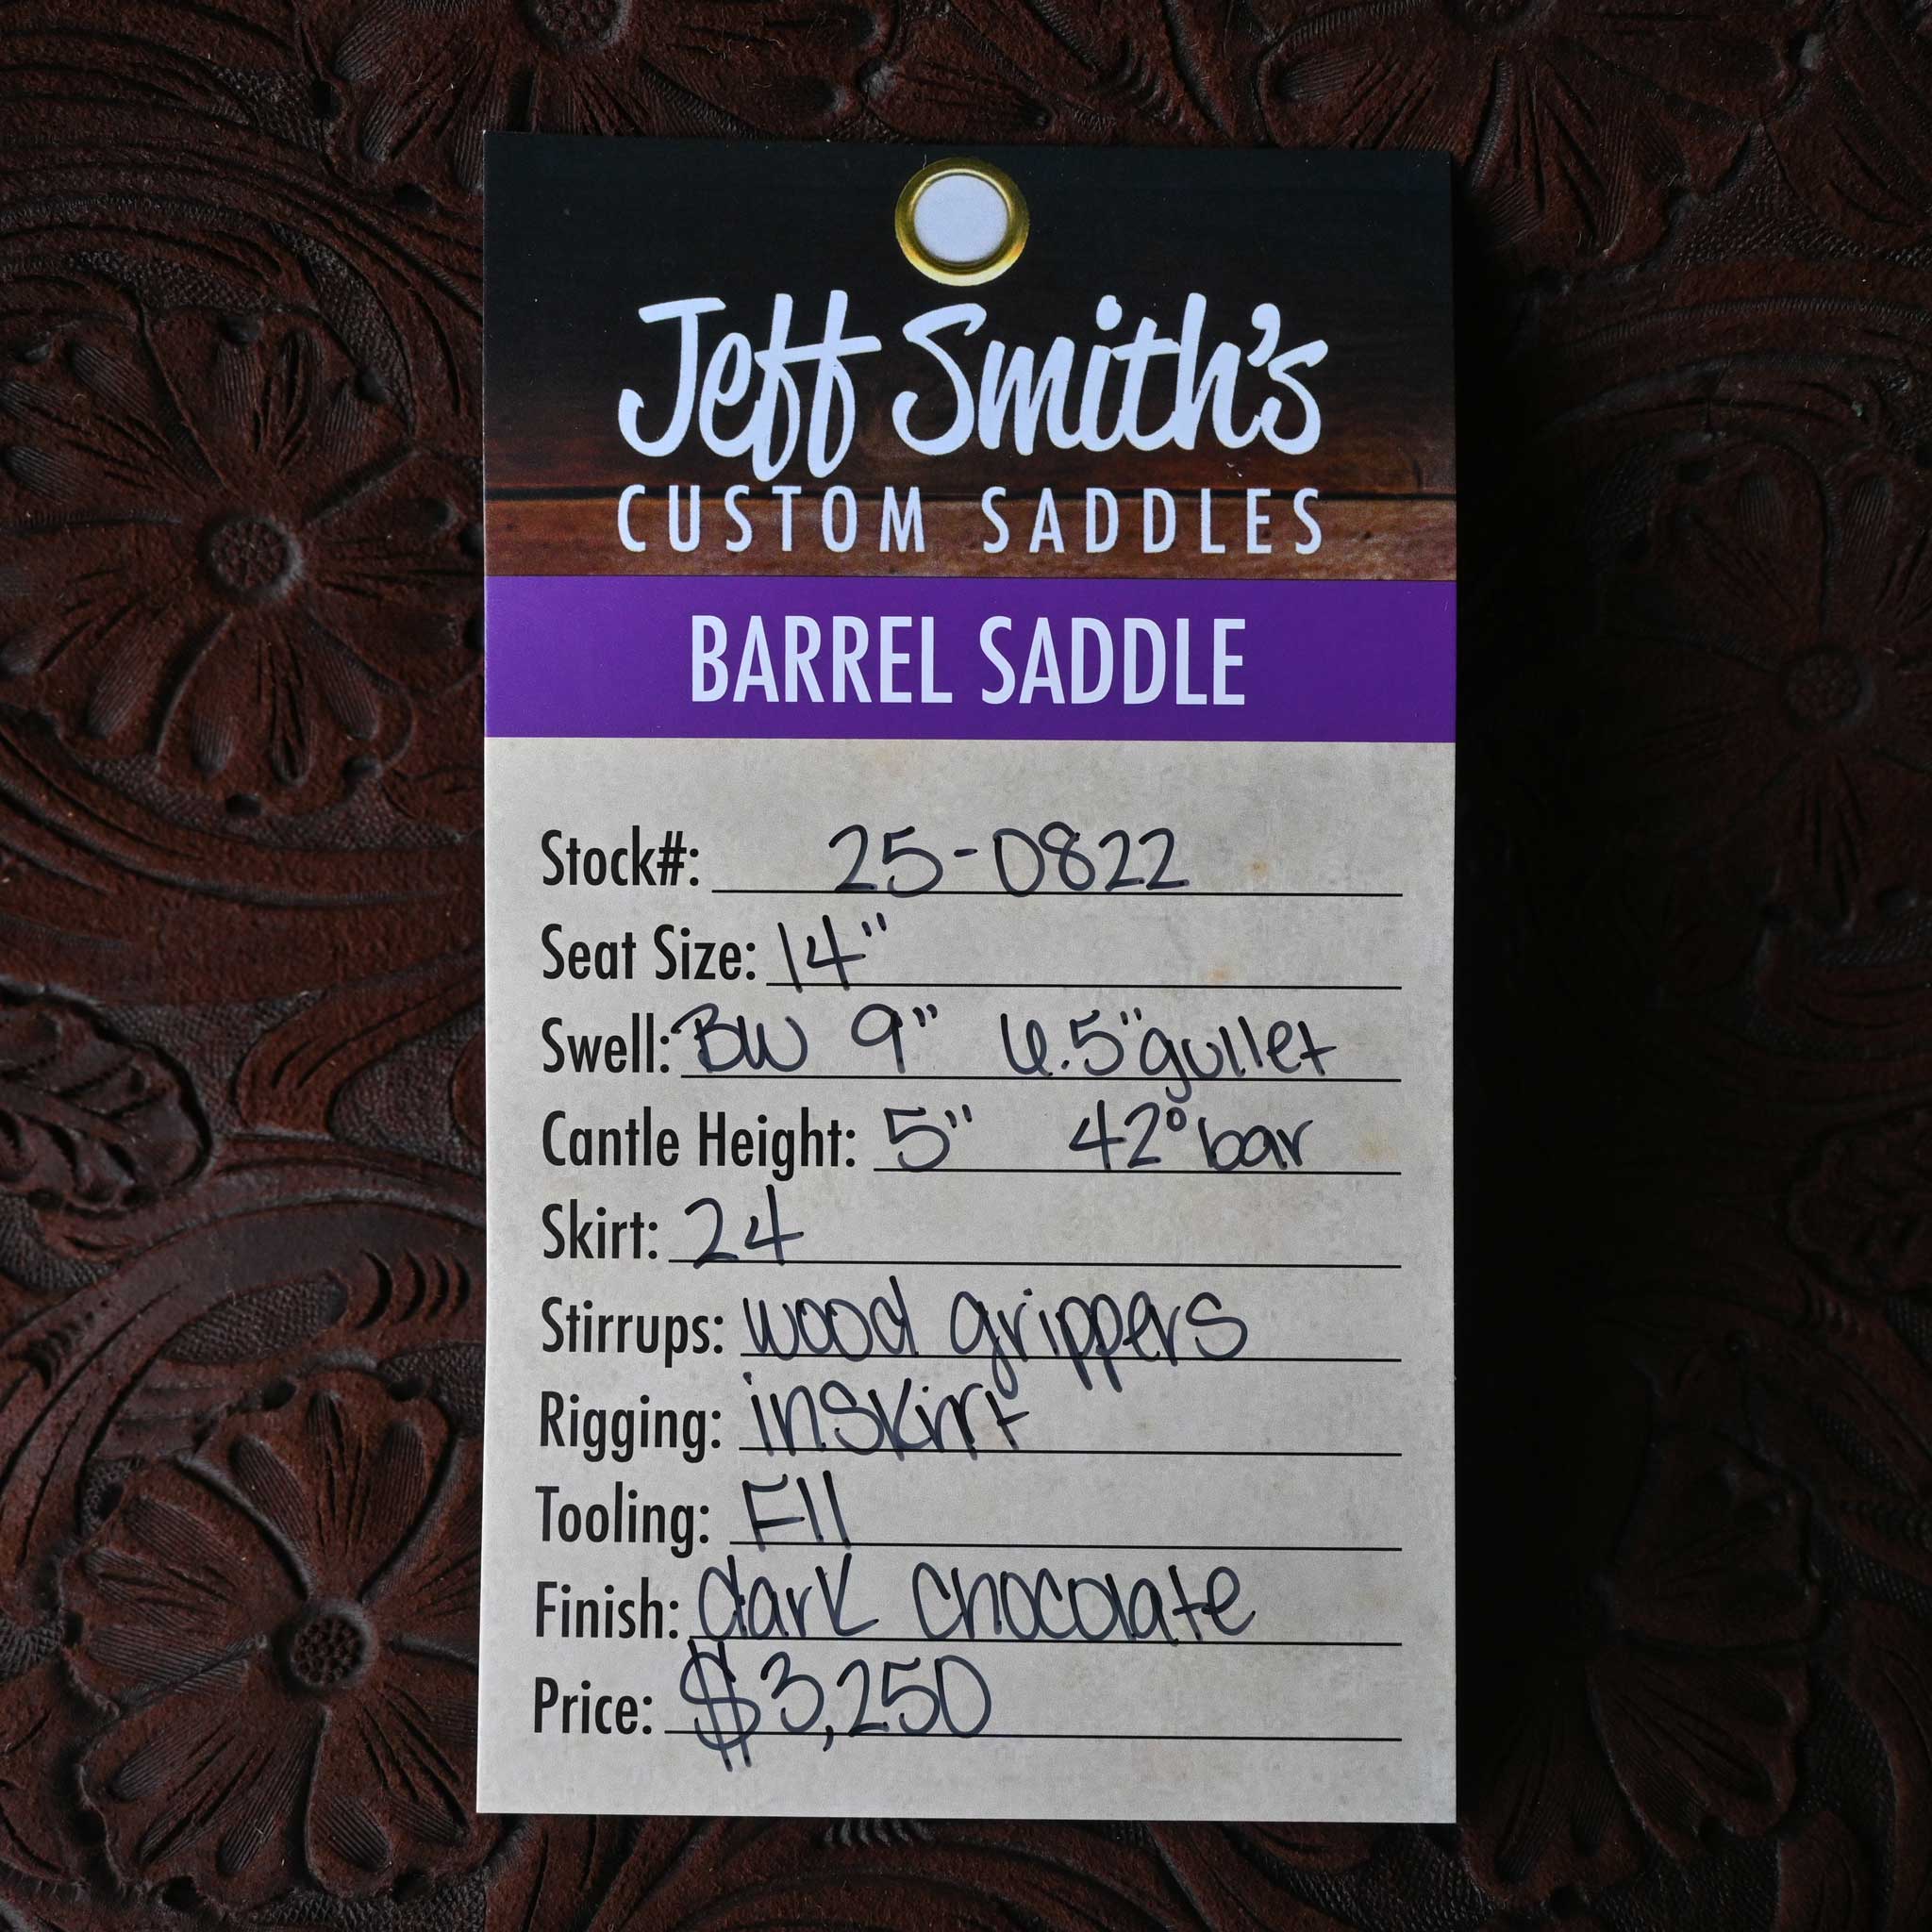 Jeff Smith's
CUSTOM SADDLES
BARREL SADDLE
Stock#: 25-0822
Seat Size: 14"
Swell: BW 9" 6.5" gullet
Cantle Height: 5" 42° bar
Skirt: 24
Stirrups: wood grippers
Rigging: inskirt
Tooling: F11
Finish: dark chocolate
Price: $3,250